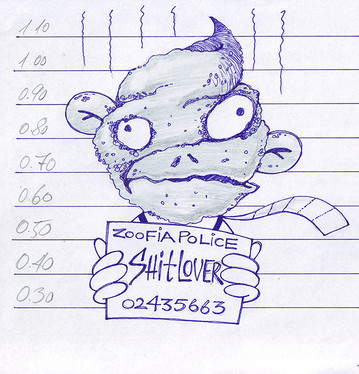 1.10
1.00
0.90
0.80
0.70
0.60
0.50
0.40
0.30
ZOOFiA POLiCE
SHitLOVER
02435663